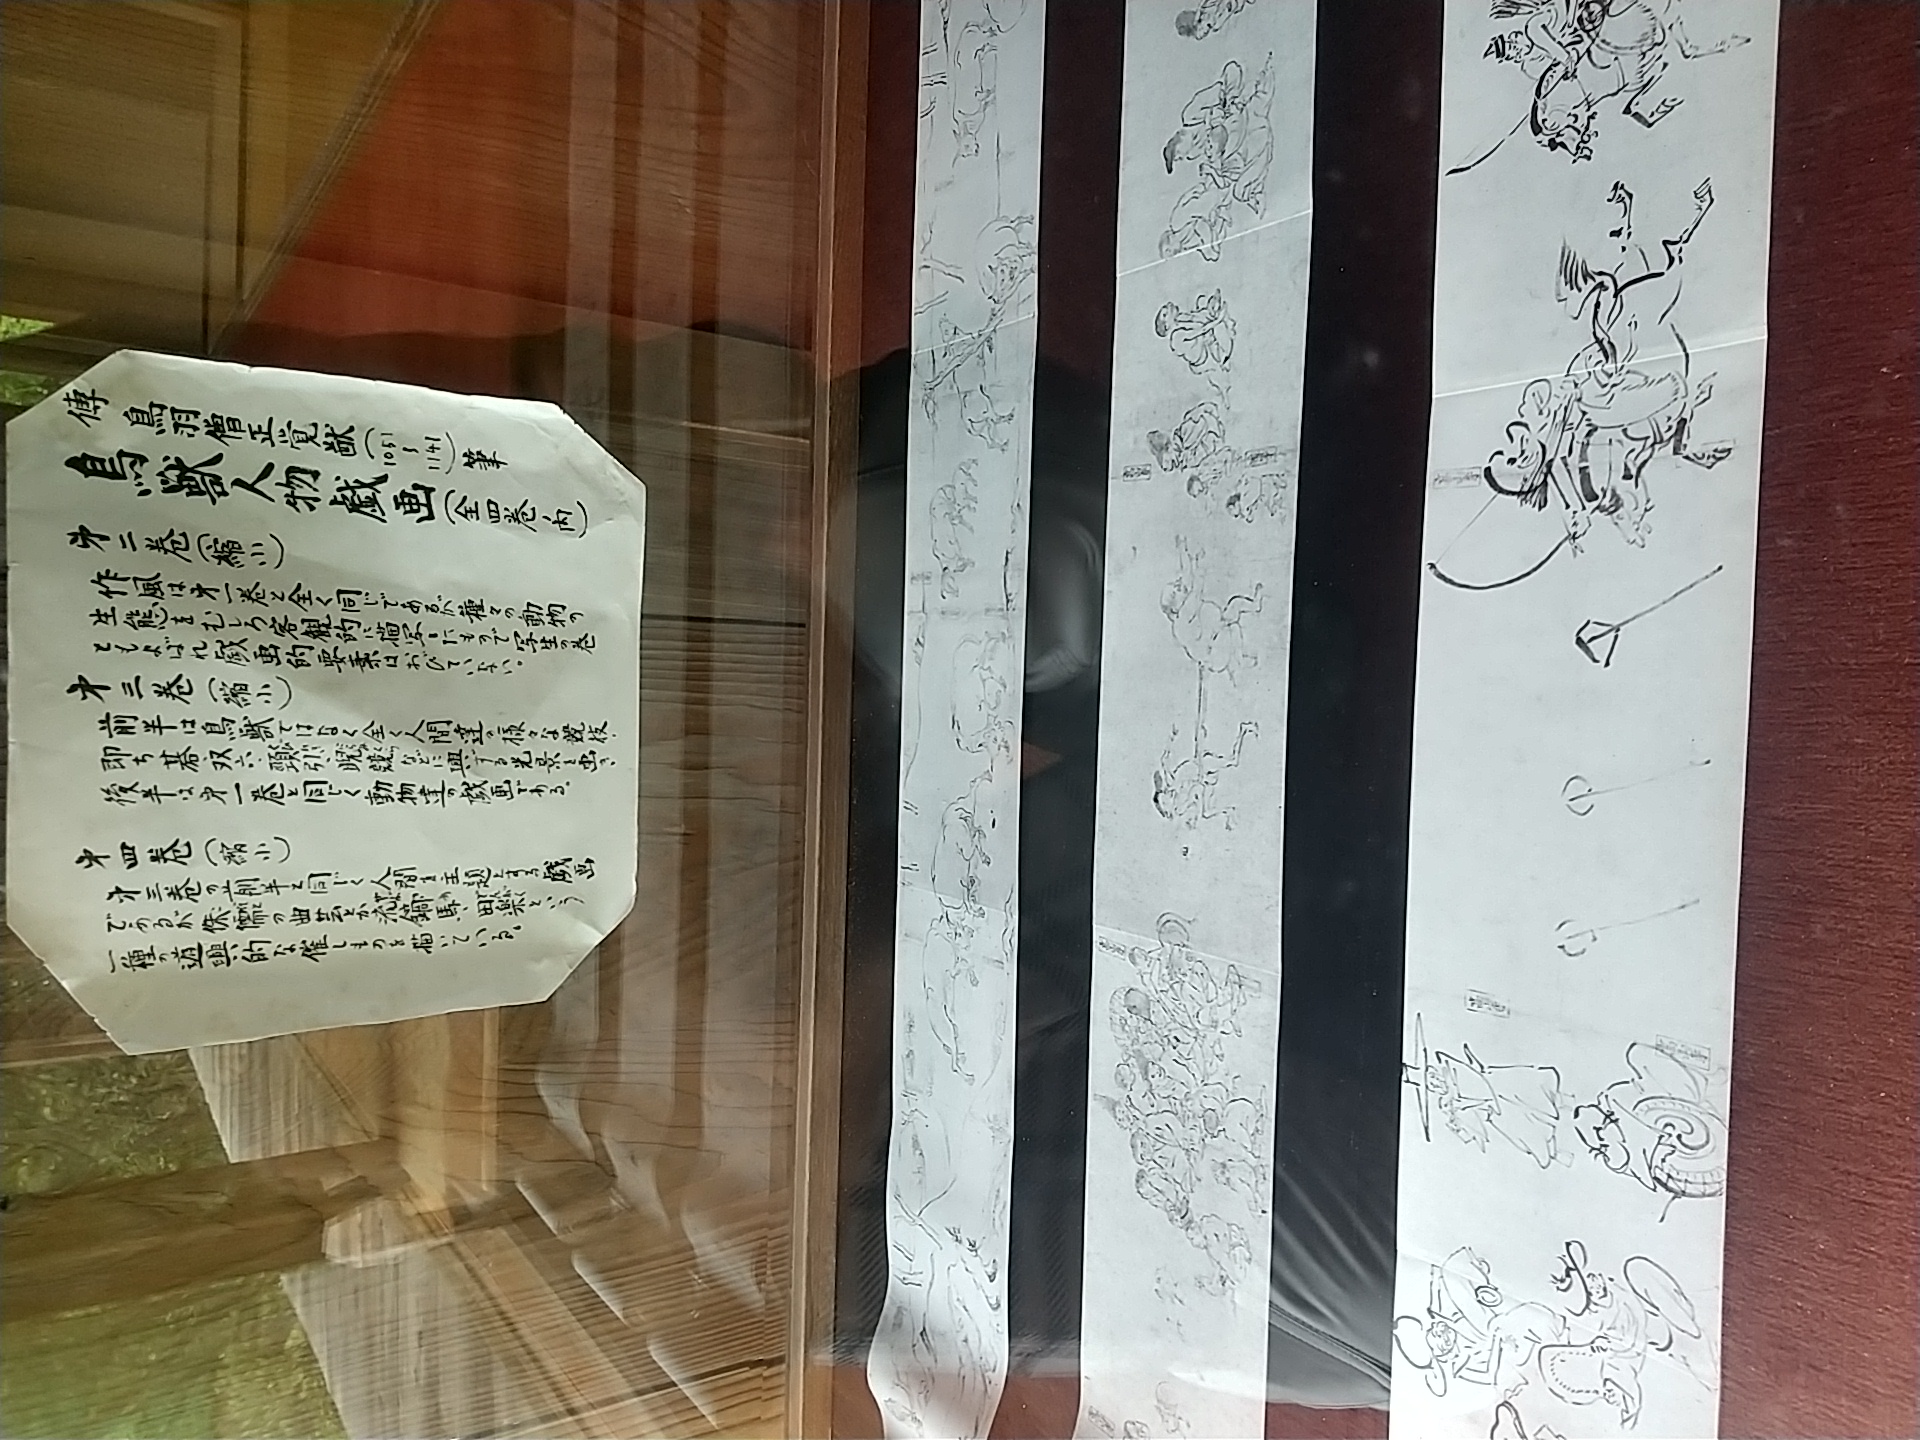 傳 鳥羽僧正覚猷(1053〜1141)筆
鳥獣人物戯画(全四巻ノ内)
第二巻(縮小)
作風は第一巻と全く同じであるが種々の動物の
生態をむしろ客観的に描写したもので写生の巻
ともよばれ戯画的要素はおびていない。
第三巻(縮小)
前半は鳥獣ではなく全く人間達の様々な競技
即ち碁、双六、頸引、睨競などに興ずる光景を画き、
後半は第一巻と同じく動物達の戯画である。
第四巻(縮小)
第三巻の前半と同じく人間を主題とする戯画
であるが侏儒の曲芸とか流鏑馬、田楽という
一種の遊興的な催しものを描いている。